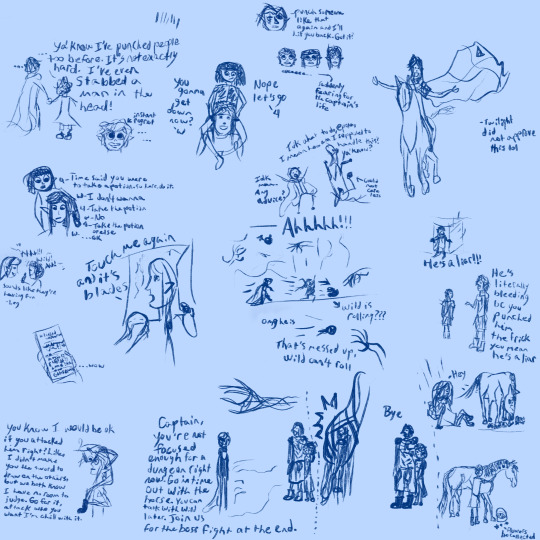 you know I've punched people
too before. It's not exactly
hard. I've even
stabbed a
man in the
head!
instant
regret
You
gonna
get
down
now?
Nope
let's go
punch someone
like that
again and I'll
hit you back. Got it?
suddenly
fearing for
the captain's
life
-Twilight
did
not approve
this lol
-Time said you were
to take a potion. So here, do it
-I don't wanna
-Take the potion
-No
-Take the potion
or else
-...ok
Idk what to do
I mean how am I supposed to
handle this!
you know?
Idk
man.
My
advice?
could
not
care
less
Touch me again
and it's
blades
Sounds like they're
having fun
...wow
Ahhhhh!!!
wild is
rolling???
omg he is
That's messed up,
Wild can't roll
He's a liar!!!
He's
literally
bleeding
bc you
punched
him
the trick
you mean
he's a liar
You know I would be ok
if you attacked
him right? Like
I didn't make
you the sword to
know the others
but we both know
I have no room to
judge. Go for it,
attack who you
want I'm chill with it.
Captain,
you're not
focused
enough for a
dungeon right
now. Go in time
out with the
horse. You can
talk with Wild
later. Join us
for the boss fight at the end.
Bye
.Hey
be corrected